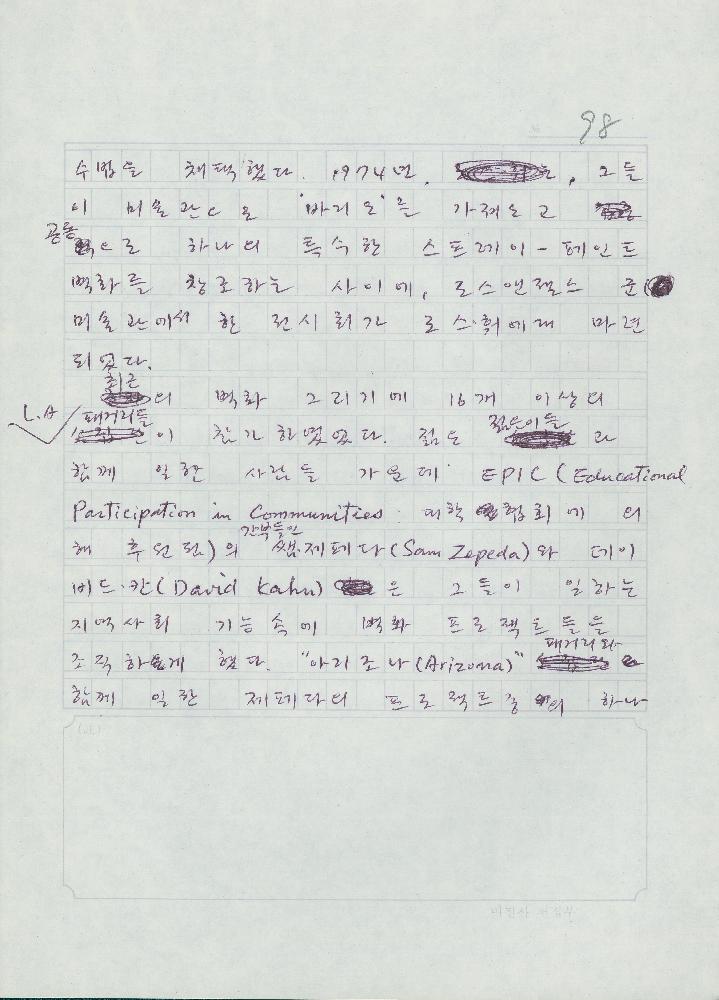 98
수법을 채택했다. 1974년, 그들
이 미술관으로 '바리오'를 가져오고
공동
으로 하나의 특수한 스프레이-페인트
벽화를 창조하는 사이에, 로스앤젤스
미술관에서 한 전시회가 로스·훠에 마련
되었다.
최근
의 벽화 그리기에 16개 이상의
L.A 패거리들 젊은이들
이 참가하였었다. 젊은 과
함께 일한 사람들 가운데 EPIC (Educational
Participation in Communities 대학협회에 의
간부들인
해 후원됨)의 쌤·제페다(Sam Zepeda)와 데이
비드·칸(David Kahn) 은 그들이 일하는
지역사회 기능속에 벽화 프로젝트들을
패거리와
조직하게 했다. "아리조나(Arizona)"
함께 일한 제페다의 프로젝트중의 하나